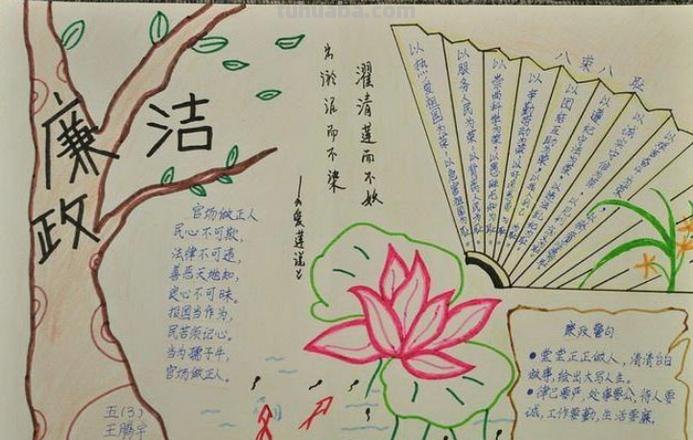 tuhuaba.com
廉洁
政
出淤泥而不染
濯清莲而不妖
——《爱莲说》
官场做正人
民心不可欺,
法律不可违,
善恶天地知,
良心不可昧。
报国当作为,
民苦须记心。
当为孺子牛,
官场做正人。
五(3)
王腾宇
八荣八耻
以热爱祖国为荣,以危害祖国为耻。
以服务人民为荣,以背离人民为耻。
以崇尚科学为荣,以愚昧无知为耻。
以辛勤劳动为荣,以好逸恶劳为耻。
以团结互助为荣,
以遵纪守法为荣,
以诚实守信为荣,
以艰苦奋斗为荣,
廉政警句
●堂堂正正做人,清清白白
做事,绘出大写人生。
●律己要严,处事要公,待人要
诚,工作要勤,生活要廉。